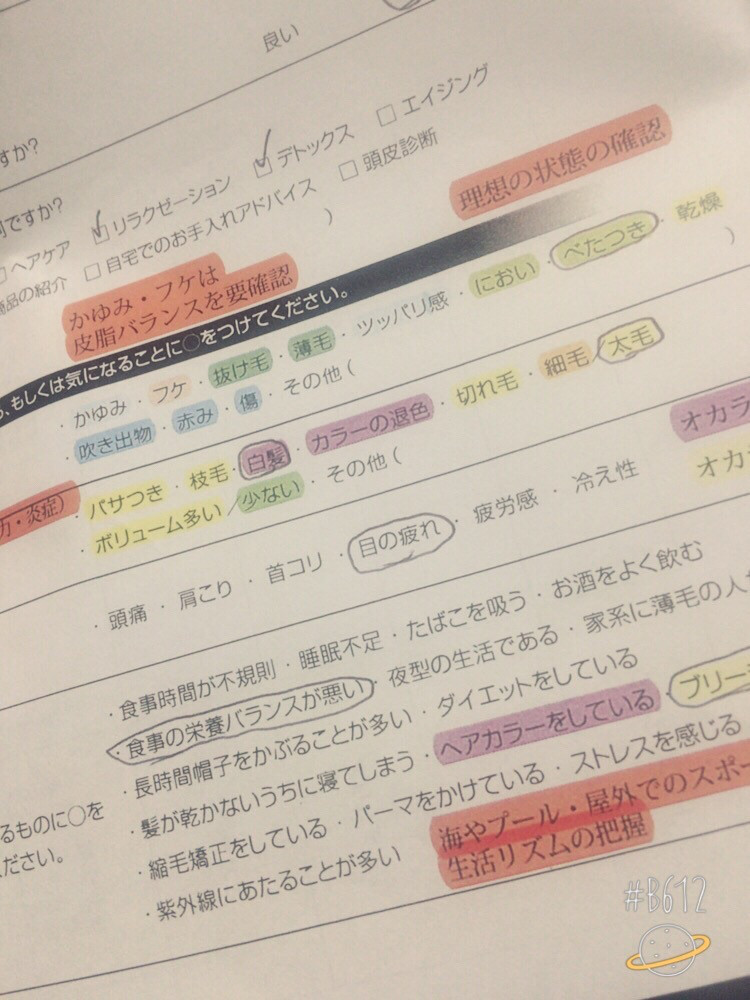 良い
すか?
何ですか?
☑リラクゼーション ☑デトックス □エイジング
□ヘアケア □自宅でのお手入れアドバイス □頭皮診断
商品の紹介 )
理想の状態の確認
かゆみ・フケは
皮脂バランスを要確認
、もしくは気になることに○をつけてください。
・かゆみ・フケ・抜け毛・薄毛・ツッパリ感・におい・べたつき・乾燥
・吹き出物・赤み・傷・その他( )
力・炎症)
・パサつき・枝毛・白髪・カラーの退色・切れ毛・細毛/太毛
・ボリューム多い/少ない・その他(
オカラ
オカ
・頭痛・肩こり・首コリ・目の疲れ・疲労感・冷え性
・食事時間が不規則・睡眠不足・たばこを吸う・お酒をよく飲む
・食事の栄養バランスが悪い・夜型の生活である・家系に薄毛の人
・長時間帽子をかぶることが多い・ダイエットをしている
・髪が乾かないうちに寝てしまう・ヘアカラーをしている・ブリー
・縮毛矯正をしている・パーマをかけている・ストレスを感じる
・紫外線にあたることが多い
るものに○を
ださい。
海やプール・屋外でのスポー
生活リズムの把握
#B612